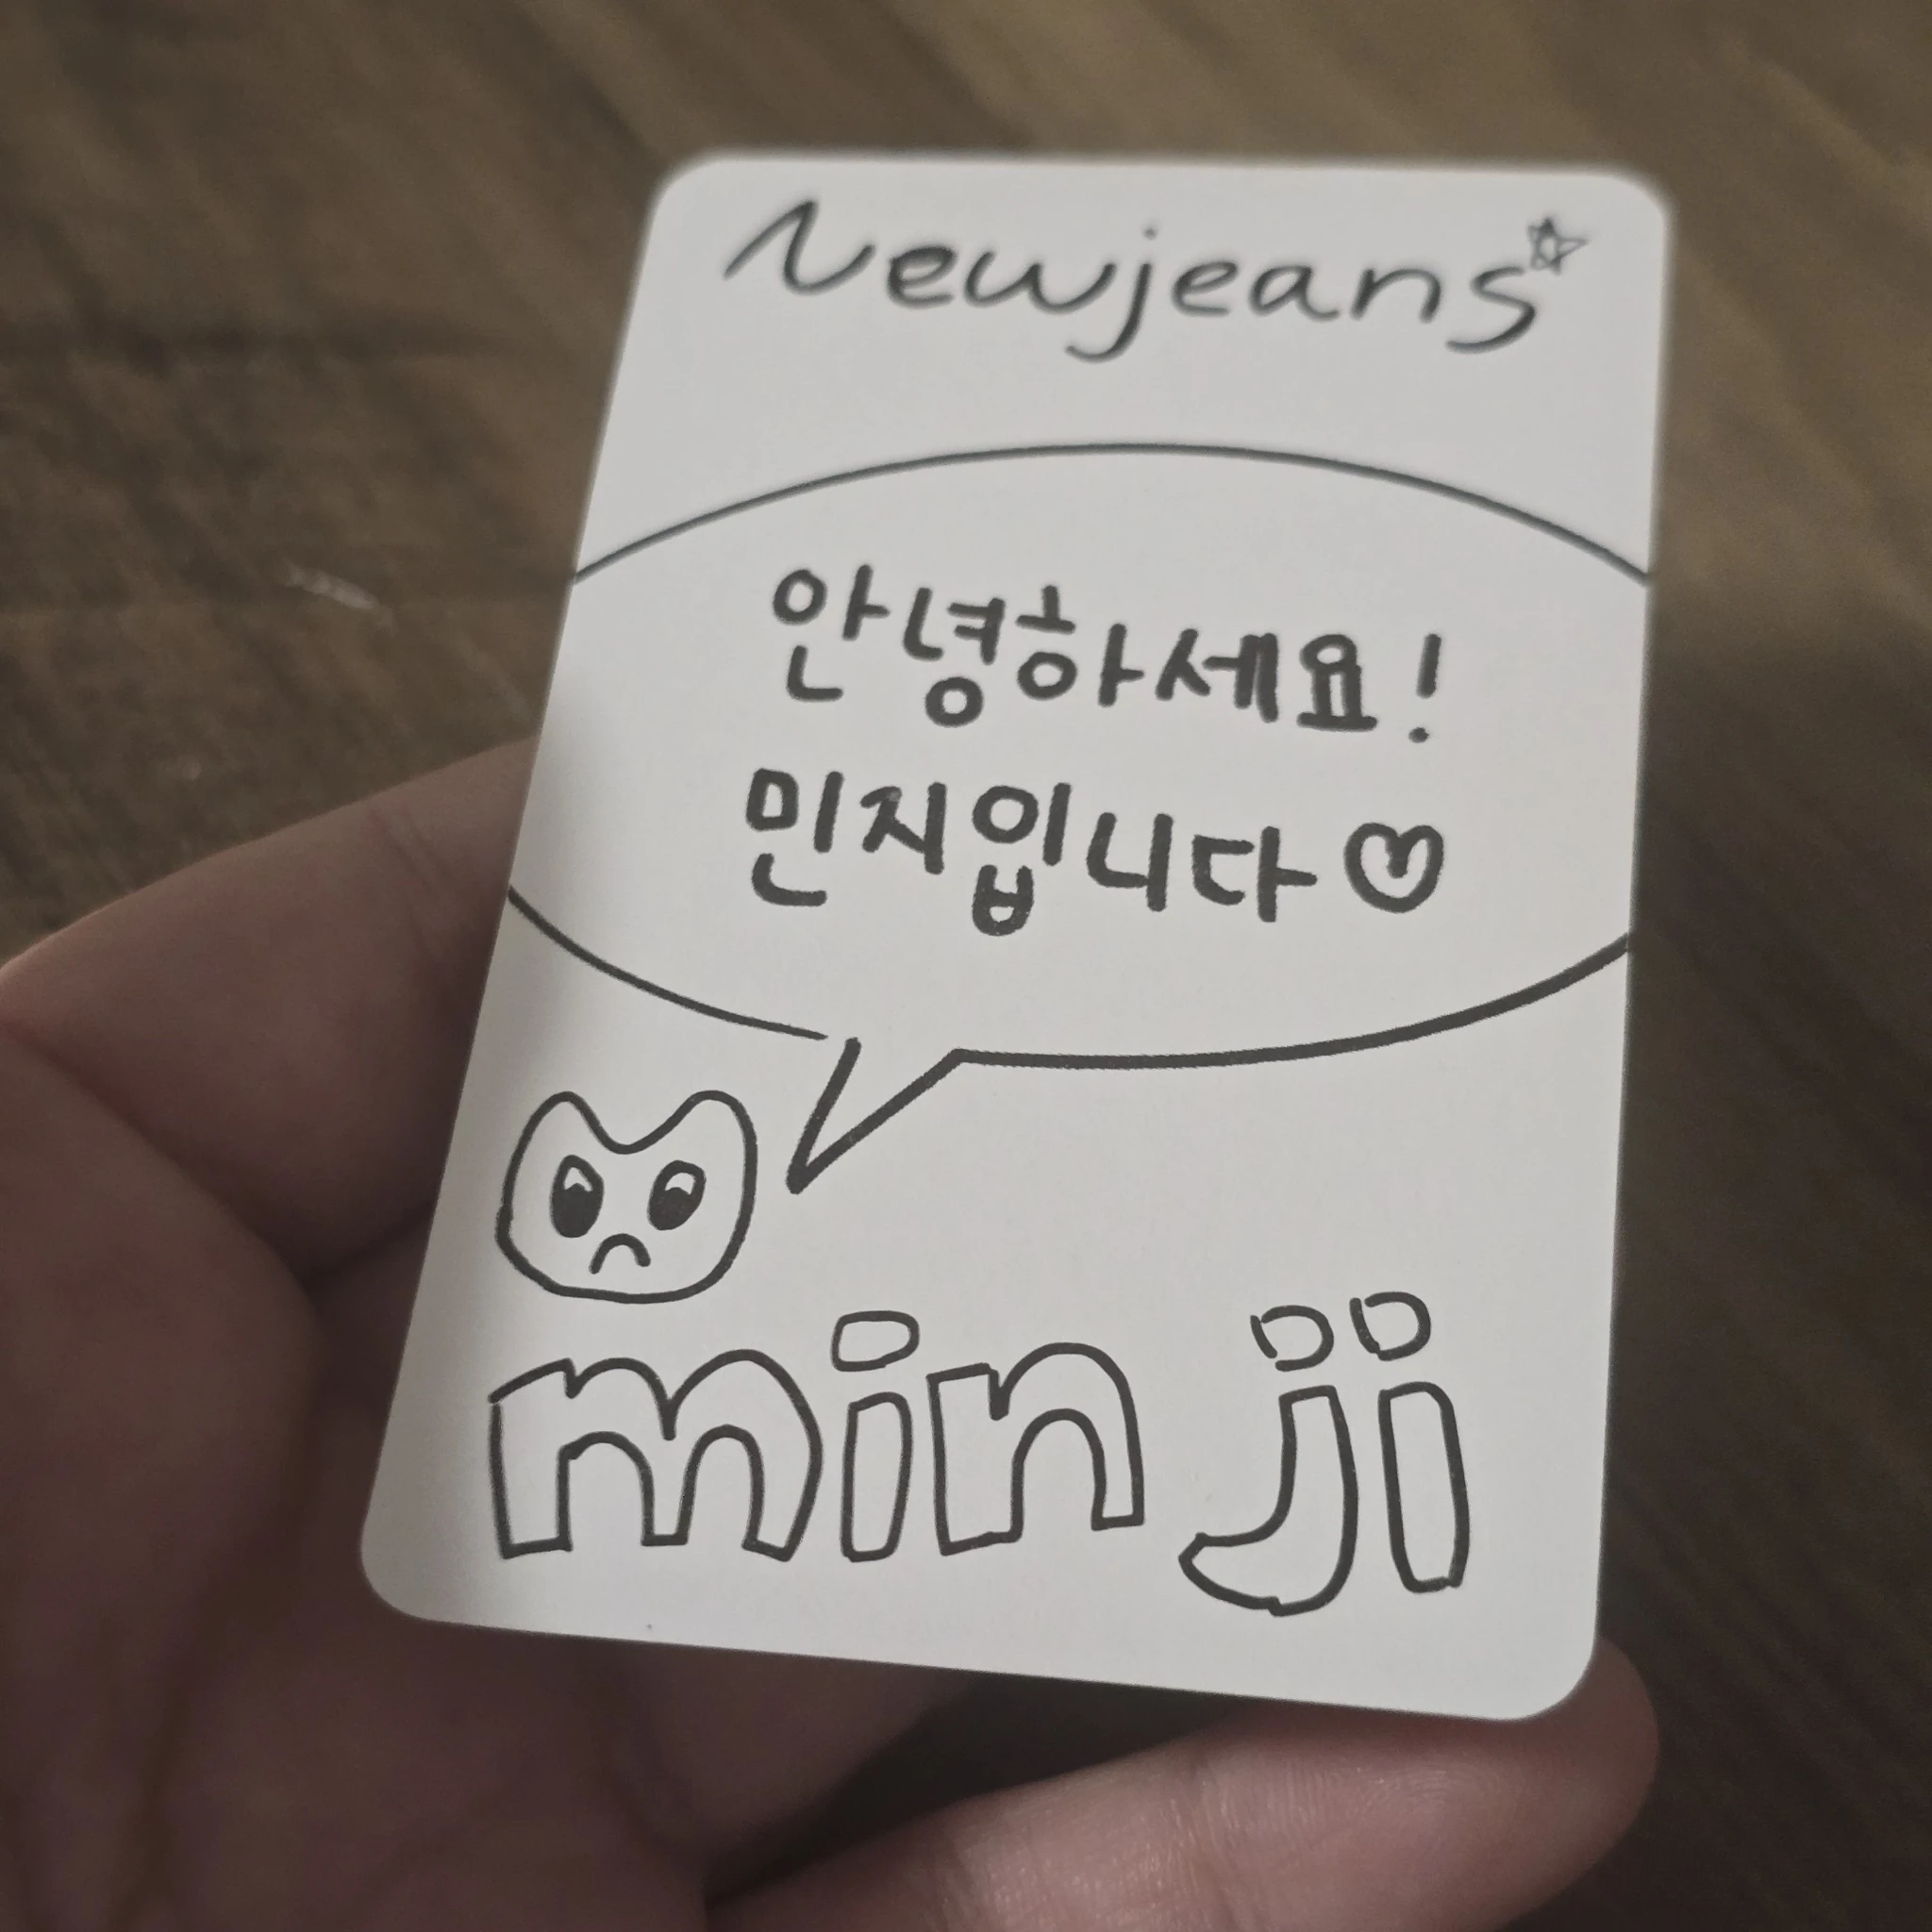 Newjeans☆
안녕하세요!
민지입니다♡
minji